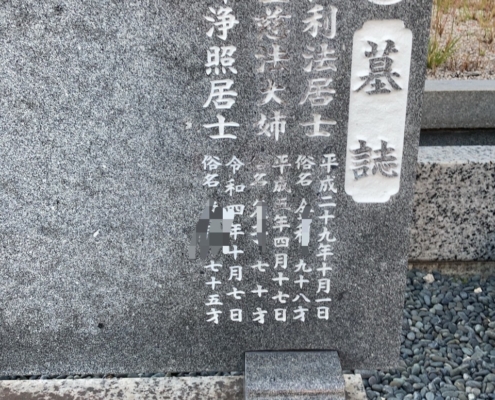 墓誌
利法居士
平成二十九年十月一日
俗名 九十八才
法大姉
平成 年四月十七日
名 七十才
浄照居士
令和四年十月七日
俗名 七十五才